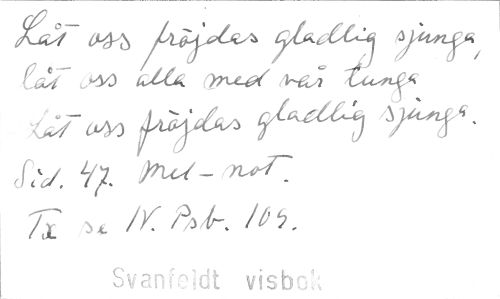 Låt oss fröjdas gladlig sjunga,
låt oss alla med vår tunga
Låt oss fröjdas gladlig sjunga.
Sid. 47. Mel-not.
Tx se N. Psb. 109.
Svanfeldt visbok